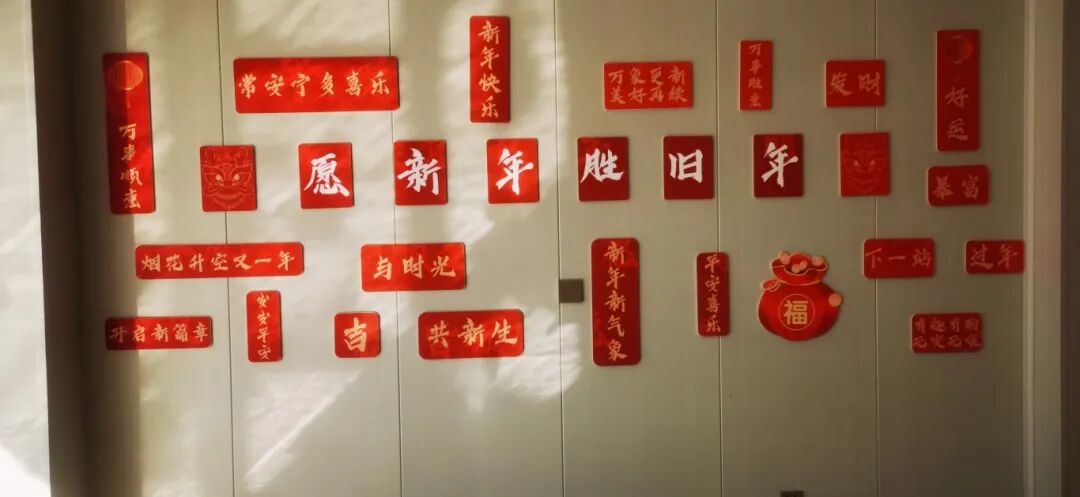 万事顺意
常安宁多喜乐
新年快乐
万象更新
美好再续
万事胜意
发财
好运
愿新年胜旧年
暴富
烟花升空又一年
与时光
新年新气象
平安喜乐
福
下一站
过年
开启新篇章
岁岁平安
吉
共新生
有趣有盼
无灾无难